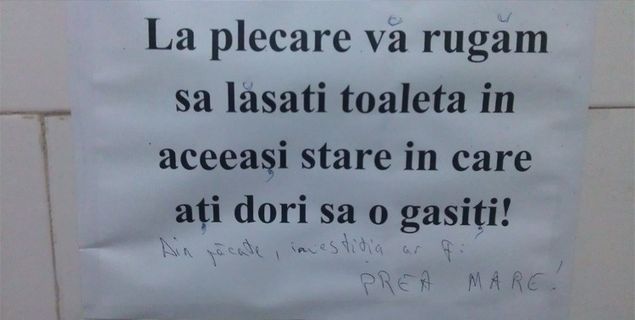 La plecare vă rugăm
sa lăsati toaleta in
aceeași stare in care
ați dori sa o gasiți!
Din păcate, investiția ar fi:
PREA MARE!